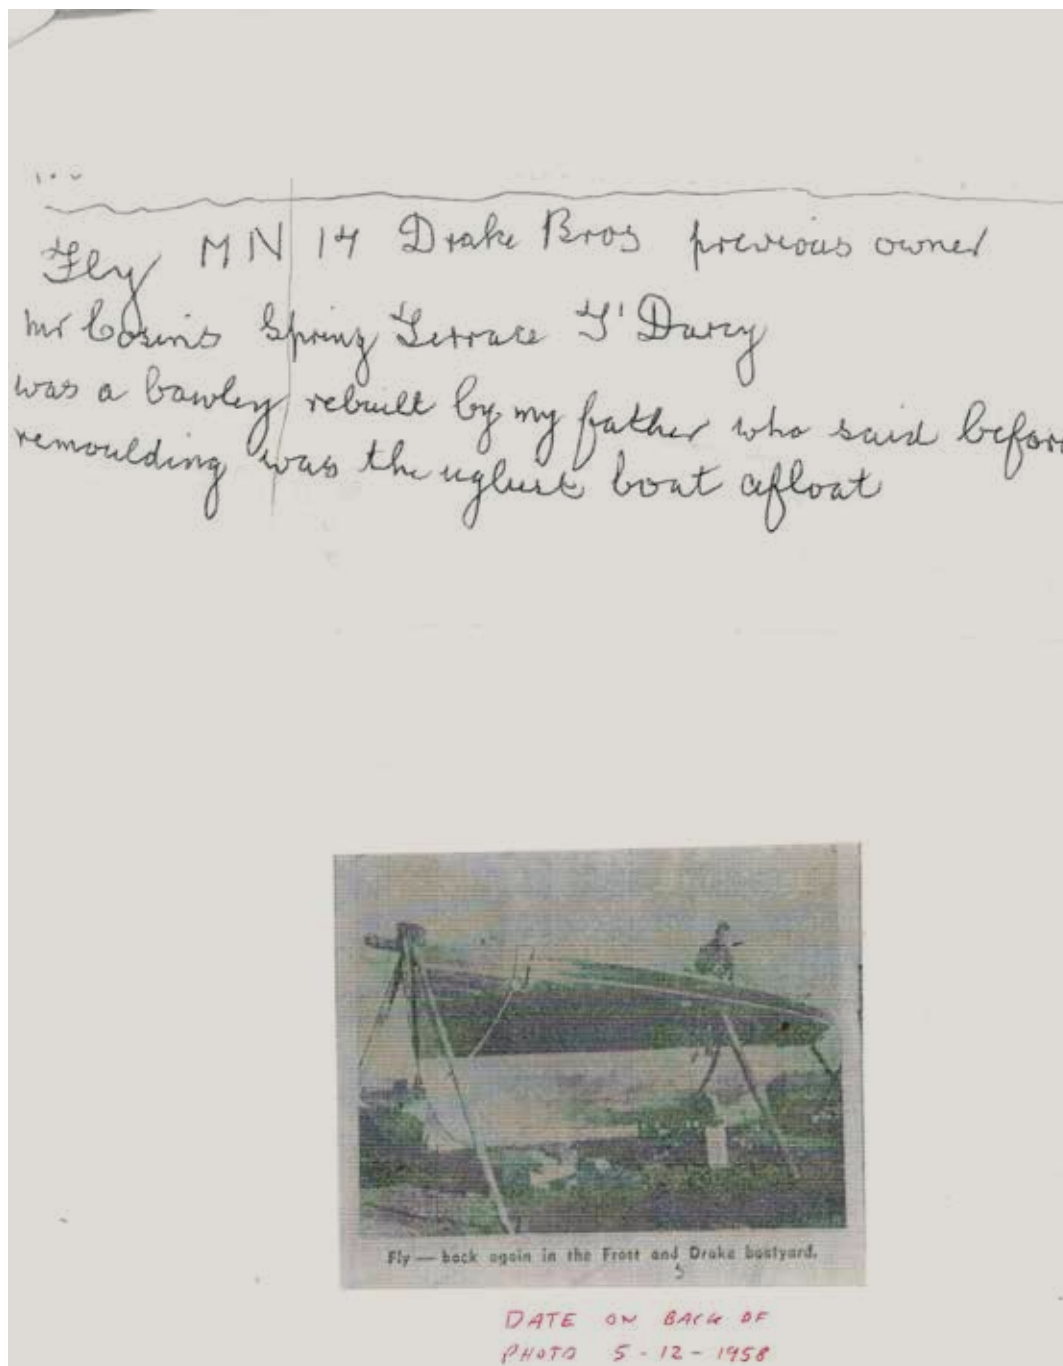 Fly MN 14 Drake Bros previous owner
Mr Cosins Spring Terrace T' Darcy
was a bawley rebuilt by my father who said before
remoulding was the uglust boat afloat
Fly — back again in the Frost and Drake boatyard.
5
DATE ON BACK OF
PHOTO 5-12-1958